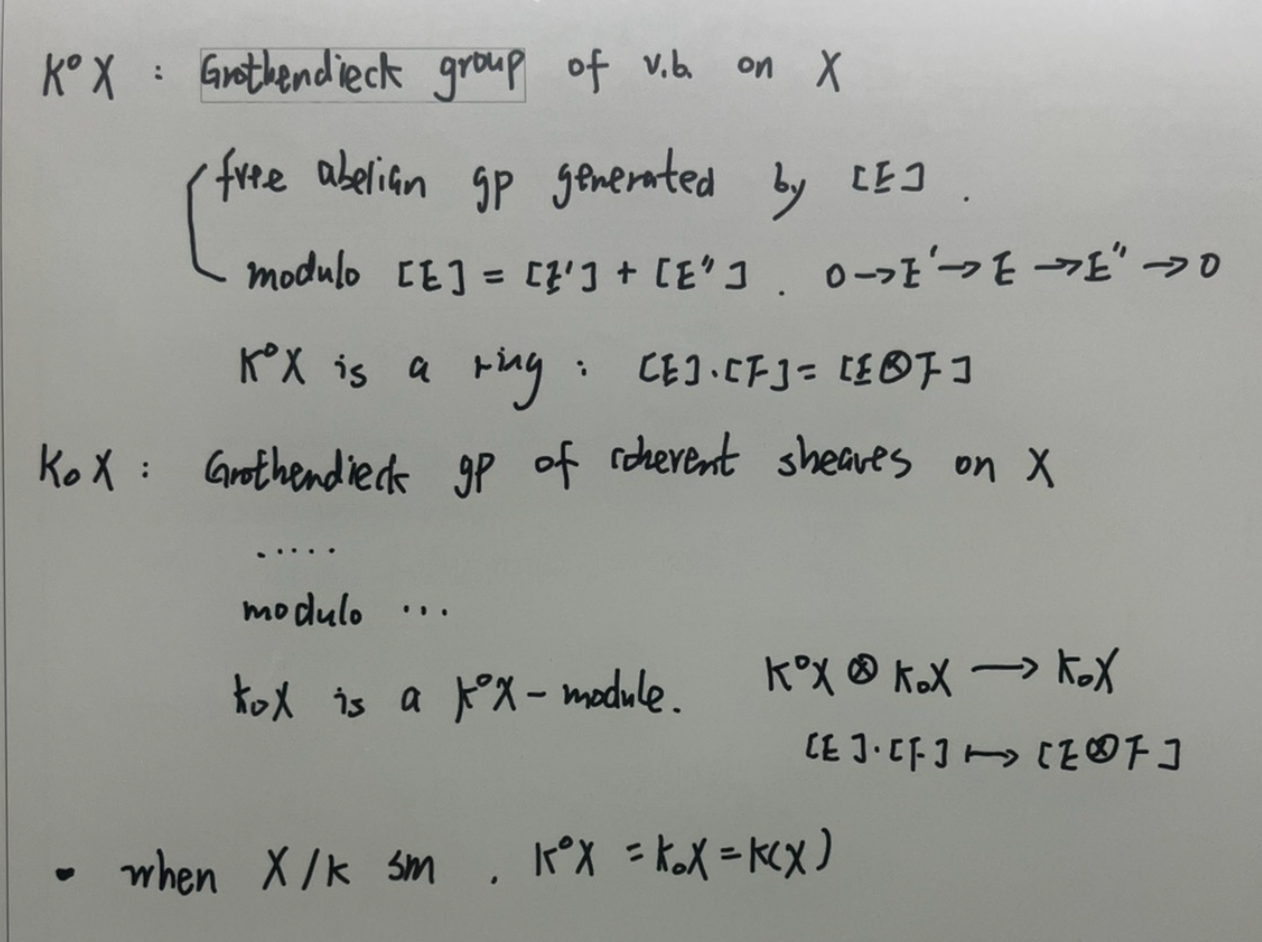 K⁰X : Grothendieck group of v.b. on X
free abelian gp generated by [E] .
modulo [E] = [E'] + [E''] . 0→E'→E→E''→0
K⁰X is a ring : [E]·[F] = [E⊗F]
K₀X : Grothendieck gp of coherent sheaves on X
.....
modulo ...
K₀X is a K⁰X-module. K⁰X ⊗ K₀X → K₀X
[E]·[F] ↦ [E⊗F]
• when X/k sm . K⁰X = K₀X = K(X)